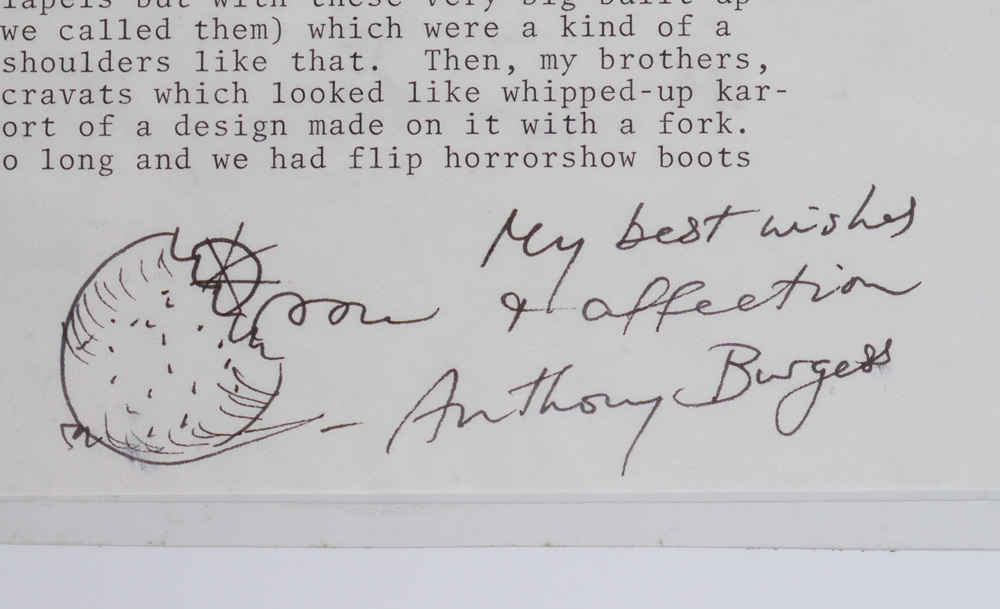 lapels but with these very big built-up
we called them) which were a kind of a
shoulders like that.  Then, my brothers,
cravats which looked like whipped-up kar-
ort of a design made on it with a fork.
o long and we had flip horrorshow boots
My best wishes
& affection
Anthony Burgess